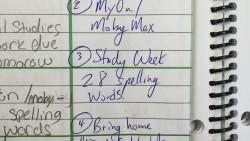 ② MyOn/
Moby Max
l Studies
ork due
morrow
③ Study Week
28 spelling
words!
n/moby-
spelling
words
④ Bring home